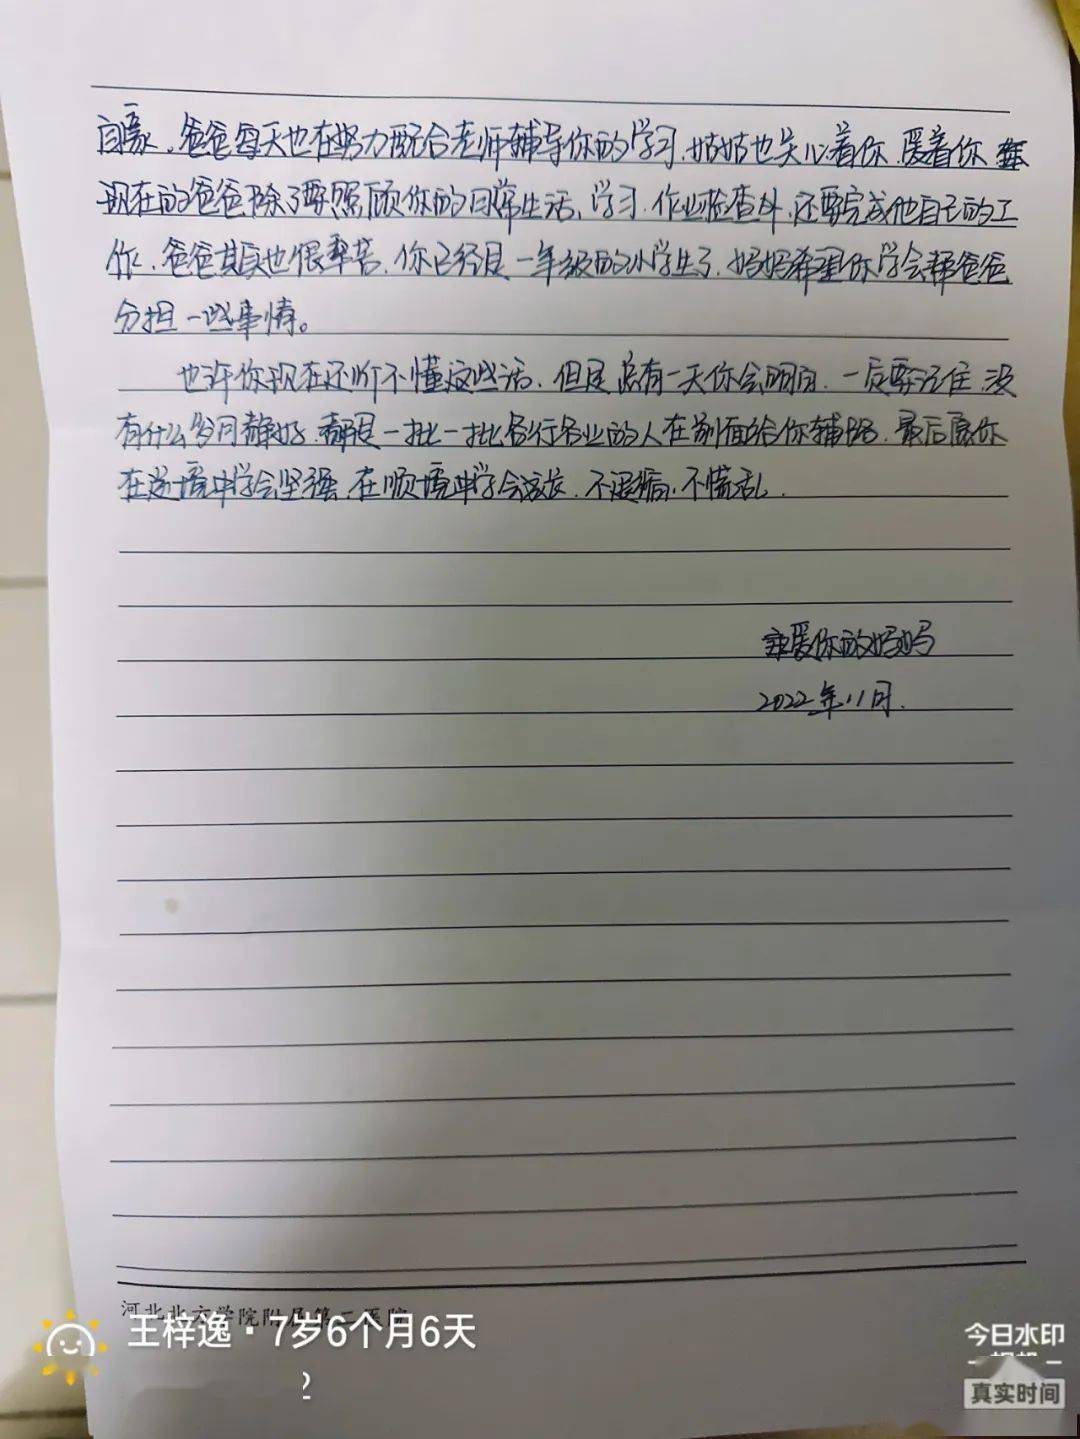 自豪。爸爸每天也在努力配合老师辅导你的学习,姑姑也关心着你,暖着你
现在的爸爸除了要照顾你的日常生活、学习、作业检查外,还要完成他自己的工
作,爸爸其实也很辛苦,你已经是一年级的小学生了,妈妈希望你学会帮爸爸
分担一些事情。
也许你现在还听不懂这些话,但是总有一天你会明白,一后要记住,没
有什么岁月静好,都是一批一批各行各业的人在前面给你铺路,最后愿你
在逆境中学会坚强,在顺境中学会,不退缩,不慌乱.
爱你的妈妈
2022年11月.
河北北方学院附属第二医院
王梓逸·7岁6个月6天
2
今日水印
相机
真实时间